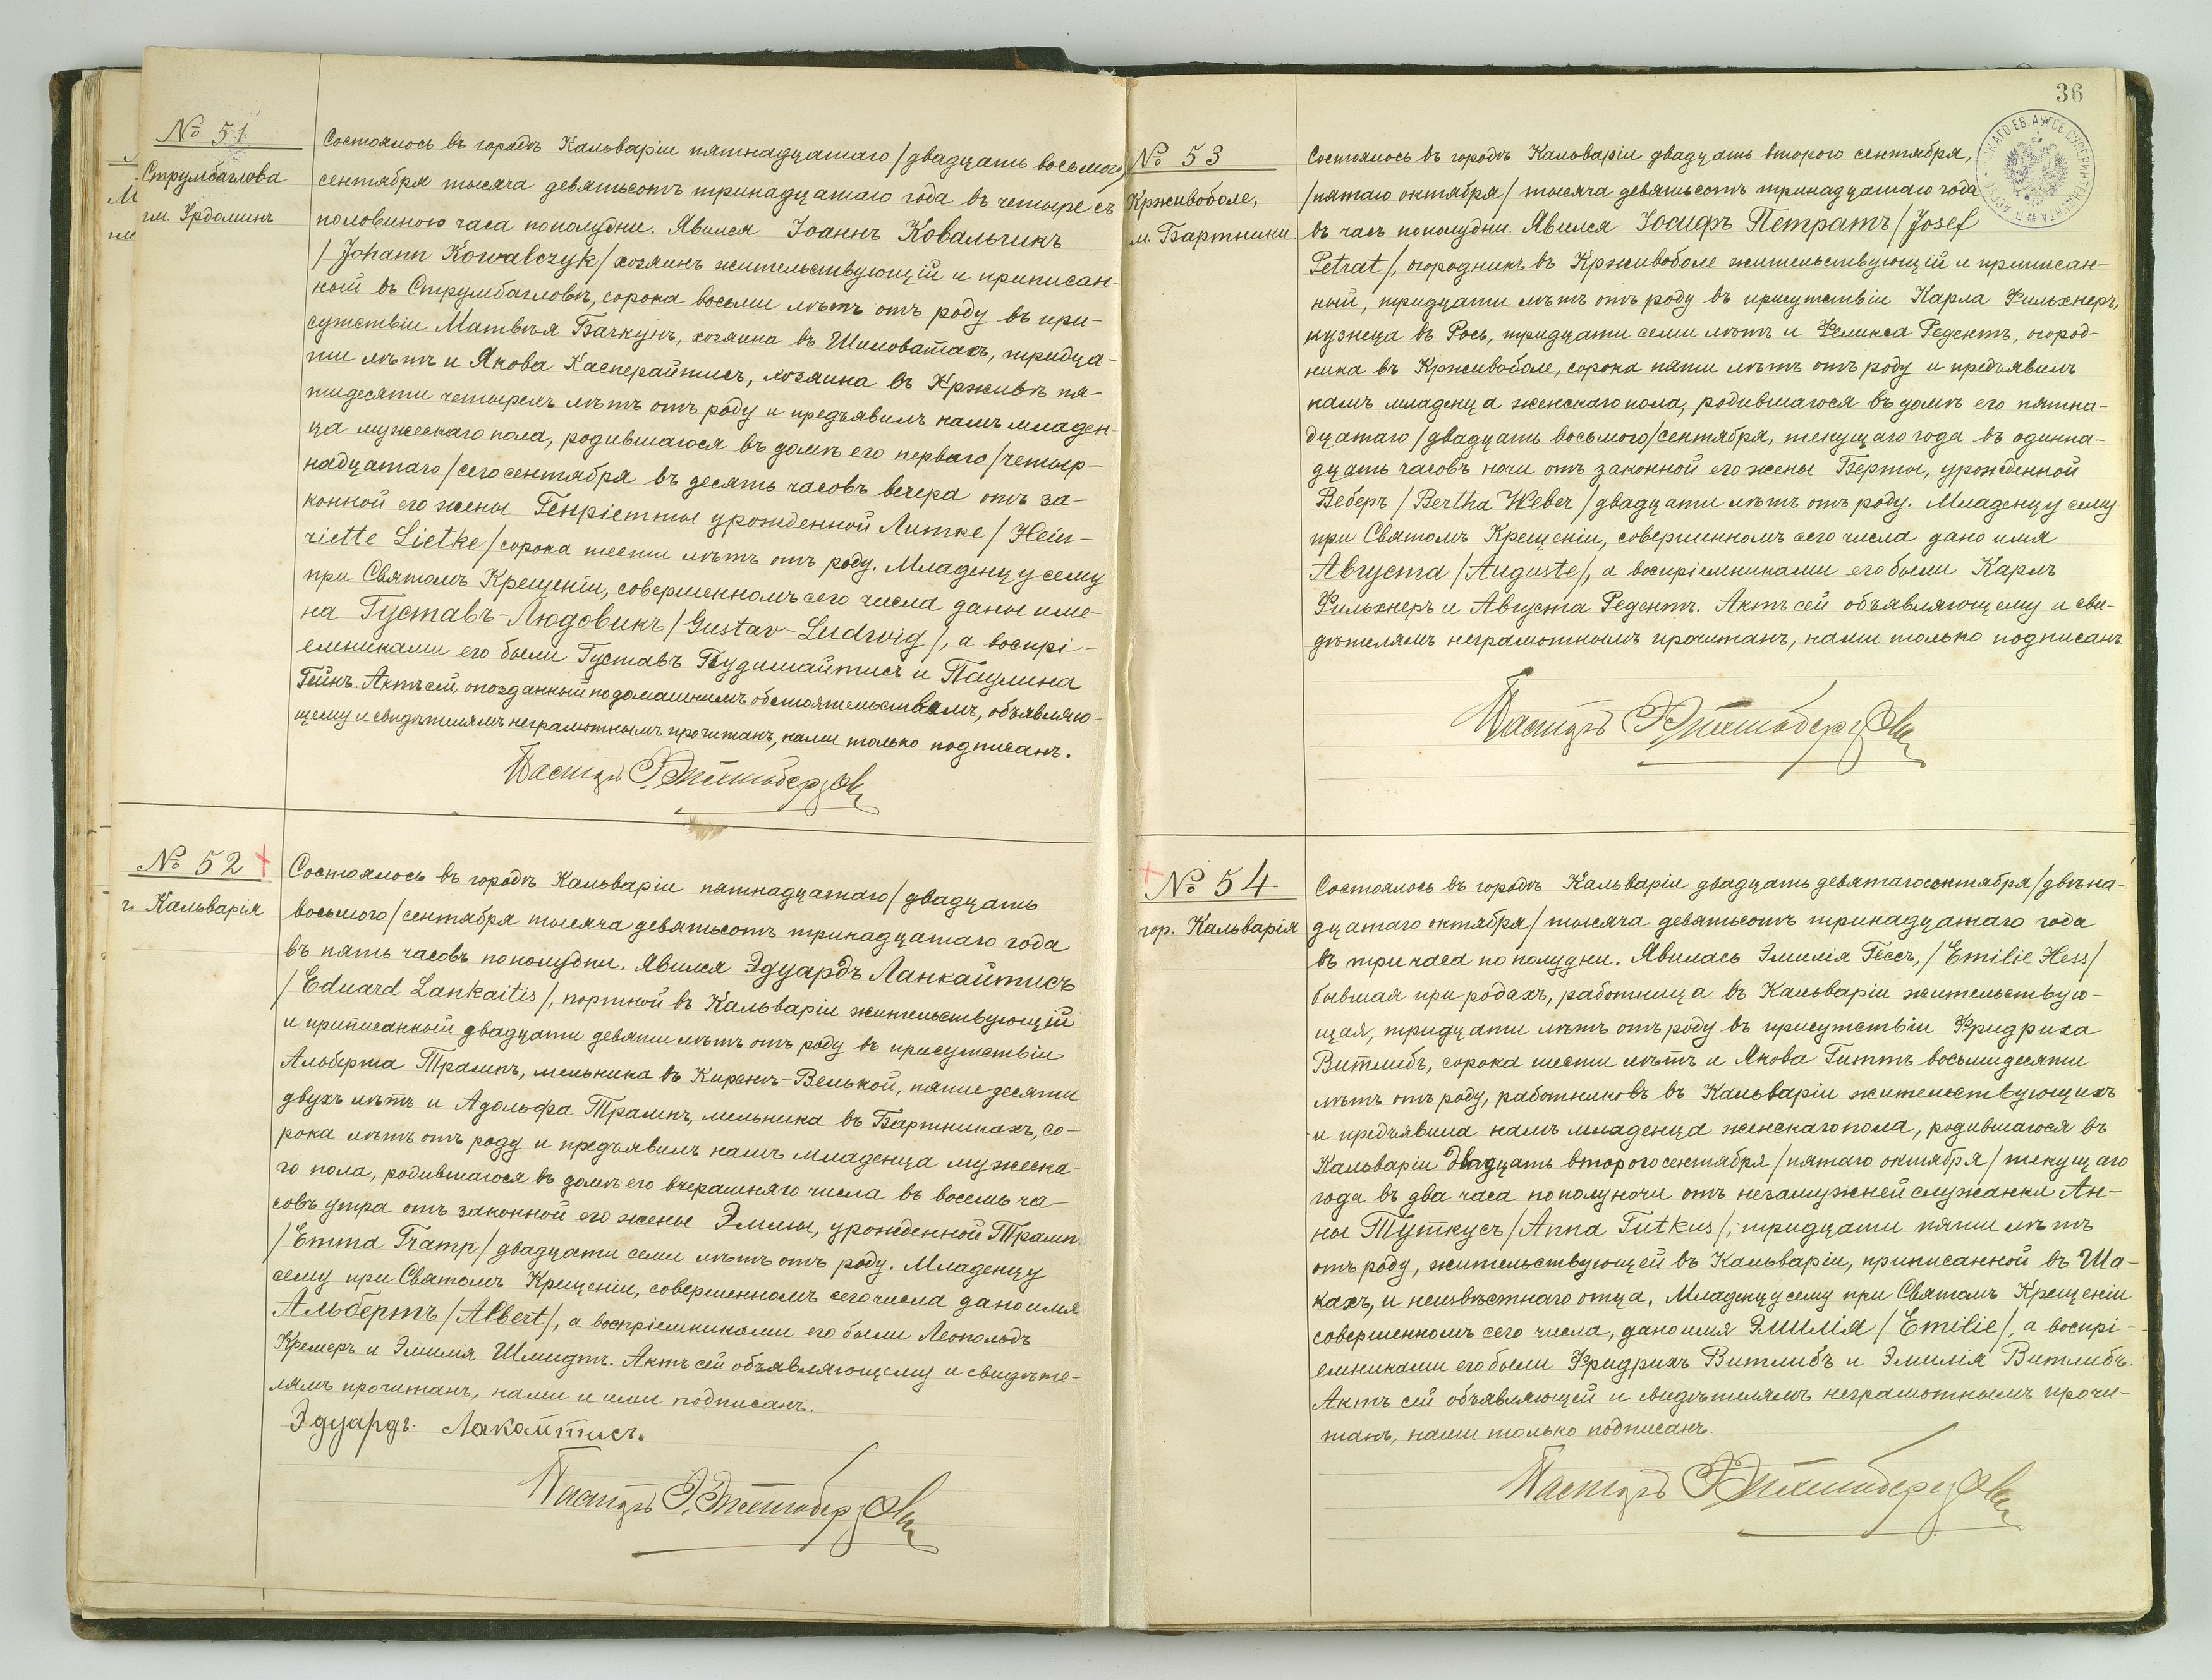 № 51
Струмбаглова
гм. Урдоминъ
Состоялось въ городѣ Кальваріи пятнадцатаго /двадцать восьмого/
сентября тысяча девятьсотъ тринадцатаго года въ четыре съ
половиною часа пополудни. Явился Іоаннъ Ковальчикъ
/Johann Kowalczyk/ хозяинъ жительствующій и приписан-
ный въ Струмбагловѣ, сорока восьми лѣтъ отъ роду въ при-
сутствіи Матвѣя Бачкунъ, хозяина въ Шиловатахъ, тридца-
ти лѣтъ и Якова Касперайтисъ, хозяина въ Крживѣ пя-
тидесяти четырехъ лѣтъ отъ роду и предъявилъ намъ младен-
ца мужескаго пола, родившагося въ домѣ его перваго /четыр-
надцатаго/ сего сентября въ десять часовъ вечера отъ за-
конной его жены Генріетты урожденной Литке /Hein-
riette Lietke/ сорока шести лѣтъ отъ роду. Младенцу сему
при Святомъ Крещеніи, совершенномъ сего числа даны име-
на Густавъ-Людовикъ /Gustav-Ludwig/, а воспрі-
емниками его были Густавъ Пудимайтисъ и Паулина
Гейнъ. Актъ сей, опозданный по домашнимъ обстоятельствамъ, объявляю-
щему и свидѣтелямъ неграмотнымъ прочитанъ, нами только подписанъ.
Пасторъ
№ 52
г. Кальварія
Состоялось въ городѣ Кальваріи пятнадцатаго /двадцать
восьмого/ сентября тысяча девятьсотъ тринадцатаго года
въ пять часовъ пополудни. Явился Эдуардъ Ланкайтисъ
/Eduard Lankaitis/, портной въ Кальваріи жительствующій
и приписанный двадцати девяти лѣтъ отъ роду въ присутствіи
Альберта Трампъ, мельника въ Киренъ-Велькой, пятидесяти
двухъ лѣтъ и Адольфа Трампъ, мельника въ Бартникахъ, со-
рока лѣтъ отъ роду и предъявилъ намъ младенца мужеска-
го пола, родившагося въ домѣ его вчерашняго числа въ восемь ча-
совъ утра отъ законной его жены Эммы, урожденной Трамп
/Emma Tramp/ двадцати семи лѣтъ отъ роду. Младенцу
сему при Святомъ Крещеніи, совершенномъ сего числа дано имя
Альбертъ /Albert/, а воспріемниками его были Леопольдъ
Кремеръ и Эмилія Шмидтъ. Актъ сей объявляющему и свидѣте-
лямъ прочитанъ, нами и ими подписанъ.
Эдуардъ
Пасторъ
36
№ 53
Крживоболе,
м. Бартники.
Состоялось въ городѣ Кальваріи двадцать второго сентября,
/пятаго октября/ тысяча девятьсотъ тринадцатаго года
въ часъ пополудни. Явился Іосифъ Петратъ /Josef
Petrat/, огородникъ въ Крживоболе жительствующій и приписан-
ный, тридцати лѣтъ отъ роду въ присутствіи Карла Фильхнеръ,
кузнеца въ Рось, тридцати семи лѣтъ и Феликса Редентъ, огород-
ника въ Крживоболе, сорока пяти лѣтъ отъ роду и предъявилъ
намъ младенца женскаго пола, родившагося въ домѣ его пятна-
дцатаго /двадцать восьмого/ сентября, текущаго года въ одинна-
дцать часовъ ночи отъ законной его жены Берты, урожденной
Веберъ /Bertha Weber/ двадцати лѣтъ отъ роду. Младенцу сему
при Святомъ Крещеніи, совершенномъ сего числа дано имя
Августа /Auguste/, а воспріемниками его были Карлъ
Фильхнеръ и Августа Редентъ. Актъ сей объявляющему и сви-
дѣтелямъ неграмотнымъ прочитанъ, нами только подписанъ
Пасторъ
№ 54
гор. Кальварія
Состоялось въ городѣ Кальваріи двадцать девятаго сентября /двѣна-
дцатаго октября/ тысяча девятьсотъ тринадцатаго года
въ три часа по полудни. Явилась Эмилія Гессъ, /Emilie Hess/
бывшая при родахъ, работница въ Кальваріи жительствую-
щая, тридцати лѣтъ отъ роду въ присутствіи Фридриха
Витлибъ, сорока шести лѣтъ и Якова Гиттъ восьмидесяти
лѣтъ отъ роду, работниковъ въ Кальваріи жительствующихъ
и предъявила намъ младенца женскаго пола, родившагося въ
Кальваріи двадцать второго сентября /пятаго октября/ текущаго
года въ два часа пополуночи отъ незамужней служанки Ан-
ны Туткусъ /Anna Tutkus/, тридцати пяти лѣтъ
отъ роду, жительствующей въ Кальваріи, приписанной въ Ша-
кахъ, и неизвѣстнаго отца. Младенцу сему при Святомъ Крещеніи
совершенномъ сего числа, дано имя Эмилія /Emilie/, а воспрі-
емниками его были Фридрихъ Витлибъ и Эмилія Витлибъ.
Актъ сей объявляющей и свидѣтелямъ неграмотнымъ прочи-
танъ, нами только подписанъ.
Пасторъ